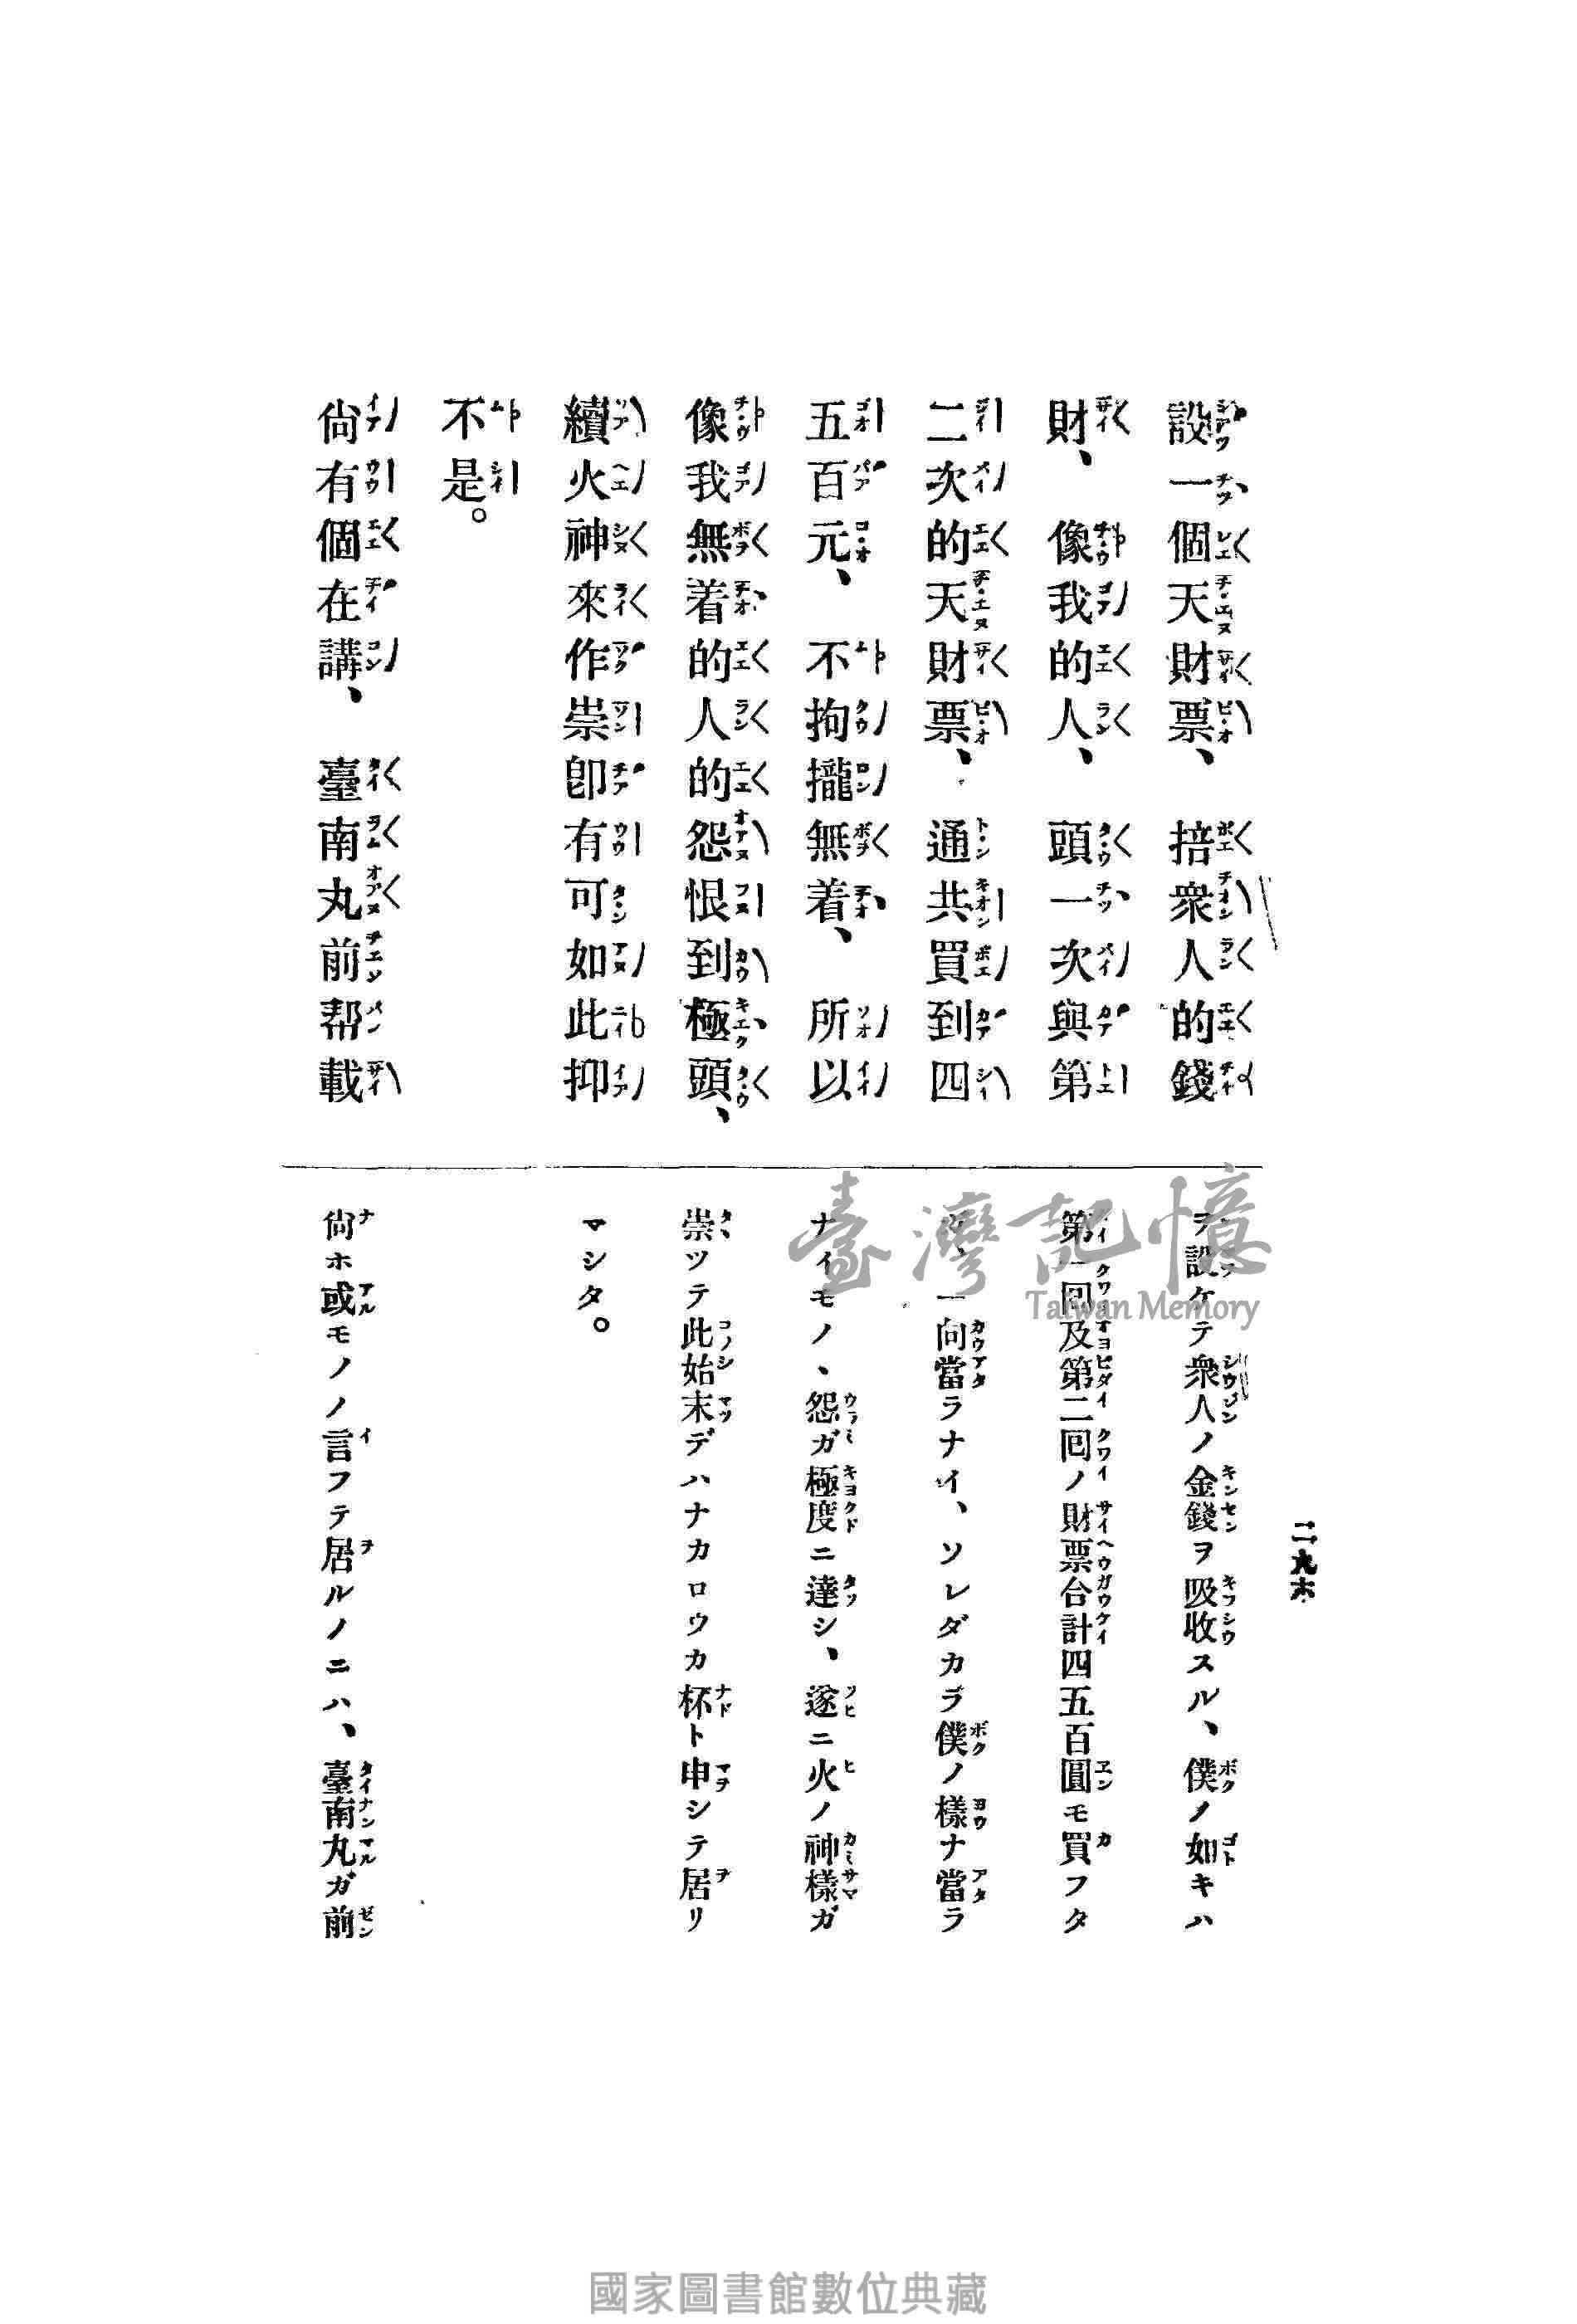 設一個天財票、掊衆人的錢
財、像我的人、頭一次與第
二次的天財票、通共買到四
五百元、不拘攏無着、所以
像我無着的人的怨恨到極頭、
續火神來作祟卽有可如此抑
不是。
尙有個在講、臺南丸前帮載
ヲ設ケテ衆人ノ金錢ヲ吸收スル、僕ノ如キハ
第一囘及第二囘ノ財票合計四五百圓モ買フタ
一向當ラナイ、ソレダカラ僕ノ樣ナ當ラ
ナイモノヽ怨ガ極度ニ達シ、遂ニ火ノ神樣ガ
祟ツテ此始末デハナカロウカ杯ト申シテ居リ
マシタ。
尙ホ或モノノ言フテ居ルノニハ、臺南丸ガ前
二九六
臺灣記憶
Taiwan Memory
國家圖書館數位典藏